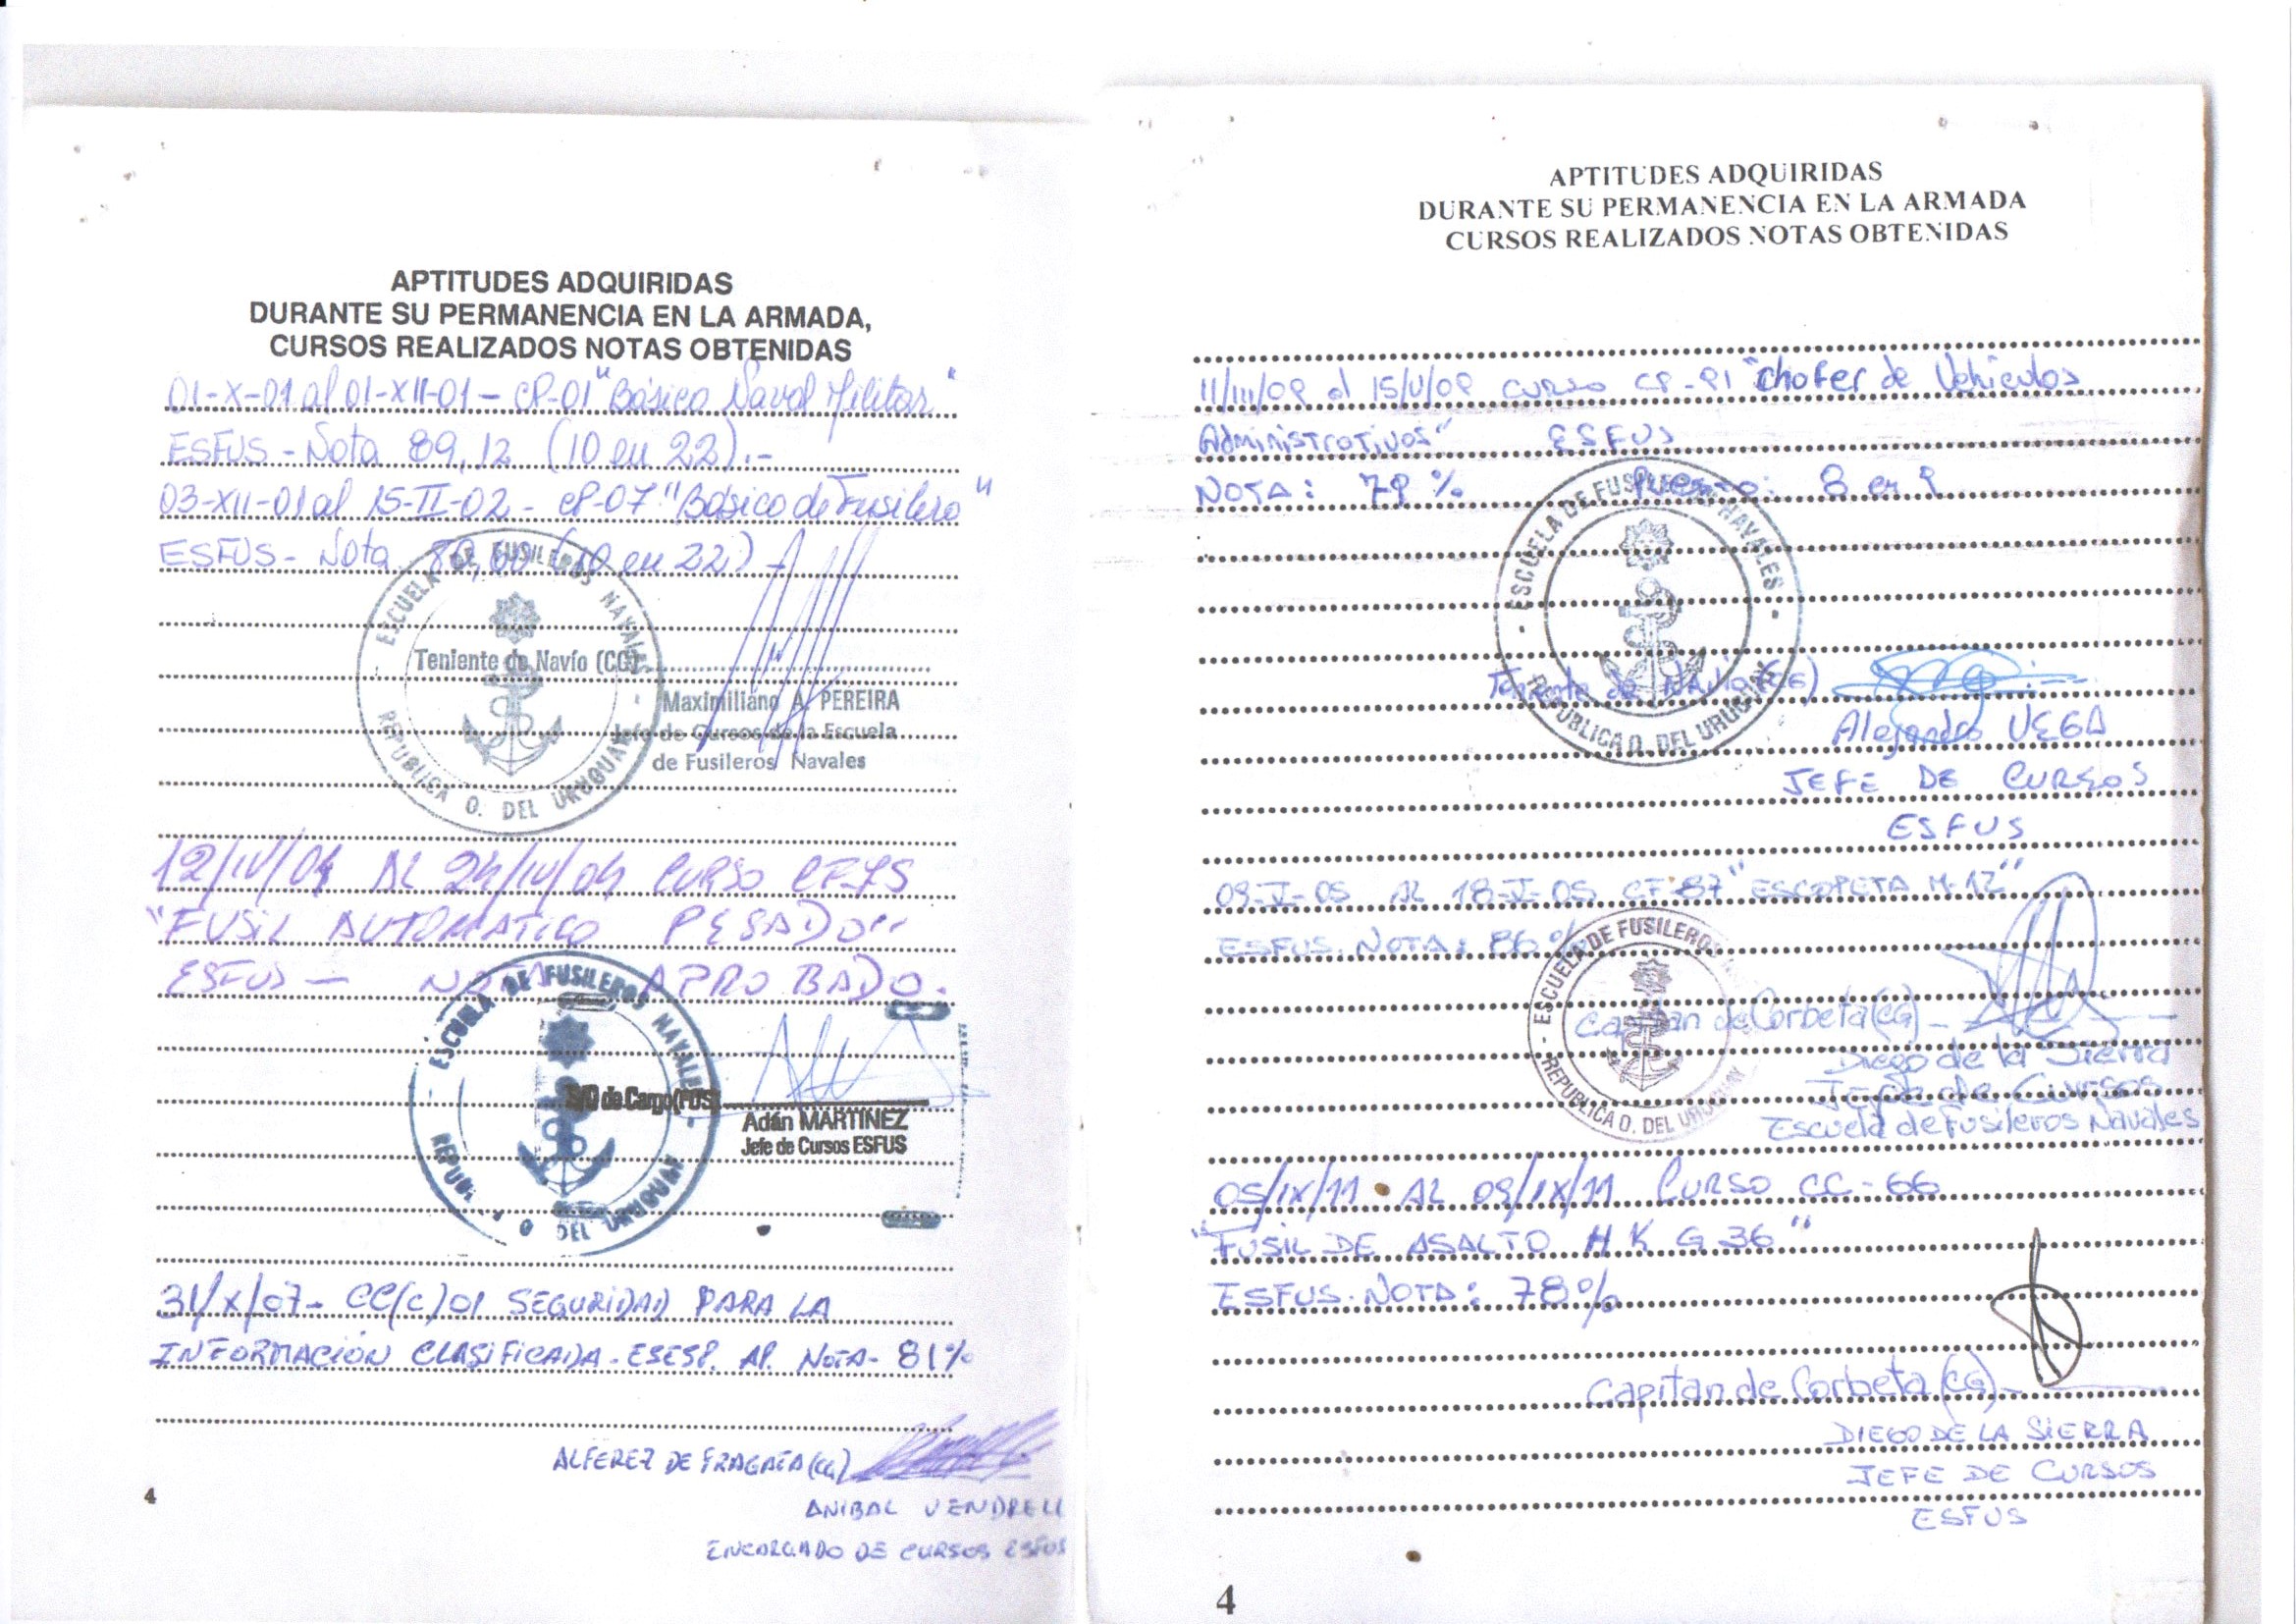 APTITUDES ADQUIRIDAS
DURANTE SU PERMANENCIA EN LA ARMADA,
CURSOS REALIZADOS NOTAS OBTENIDAS
01-X-01 al 01-XII-01 - CP-01 "Básico Naval Militar"
ESFUS - Nota 89,12 (10 en 22).-
03-XII-01 al 15-II-02 - CP-07 "Básico de Fusilero"
ESFUS - Nota (10 en 22) -
ESCUELA DE FUSILEROS NAVALES
REPUBLICA O. DEL URUGUAY
Teniente de Navío (CG)
Maximiliano A. PEREIRA
Jefe de Cursos de la Escuela
de Fusileros Navales
12/IV/04 AL 24/IV/04 CURSO
"FUSIL AUTOMATICO PESADO"
ESFUS - NOTA APROBADO.
ESCUELA DE FUSILEROS NAVALES
REPUBLICA O DEL URUGUAY
S/O de Cargo (FUS)
Adán MARTINEZ
Jefe de Cursos ESFUS
31/X/07- CC(C)01 SEGURIDAD PARA LA
INFORMACIÓN CLASIFICADA - ESESP. AP. NOTA- 81%
ALFEREZ DE FRAGATA (CG)
ANIBAL VENDRELL
ENCARGADO DE CURSOS ESFUS
4
APTITUDES ADQUIRIDAS
DURANTE SU PERMANENCIA EN LA ARMADA
CURSOS REALIZADOS NOTAS OBTENIDAS
curso "Chofer de Vehiculos
Administrativos" ESFUS
NOTA: 79 % Puesto: 8 en 9
ESCUELA DE FUSILEROS NAVALES
REPUBLICA O. DEL URUGUAY
Teniente de Navio
Alejandro VEGA
JEFE DE CURSOS
ESFUS
CF-87 "ESCOPETA M-12"
ESFUS. NOTA: 86 %
ESCUELA DE FUSILEROS
REPUBLICA O. DEL URUGUAY
Capitan de Corbeta (CG) -
Diego de la Sierra
Jefe de Cursos
Escuela de Fusileros Navales
05/IX/11 AL 09/IX/11 CURSO CC-66
"FUSIL DE ASALTO H K G 36"
ESFUS. NOTA: 78%
Capitan de Corbeta (CG) -
DIEGO DE LA SIERRA
JEFE DE CURSOS
ESFUS
4